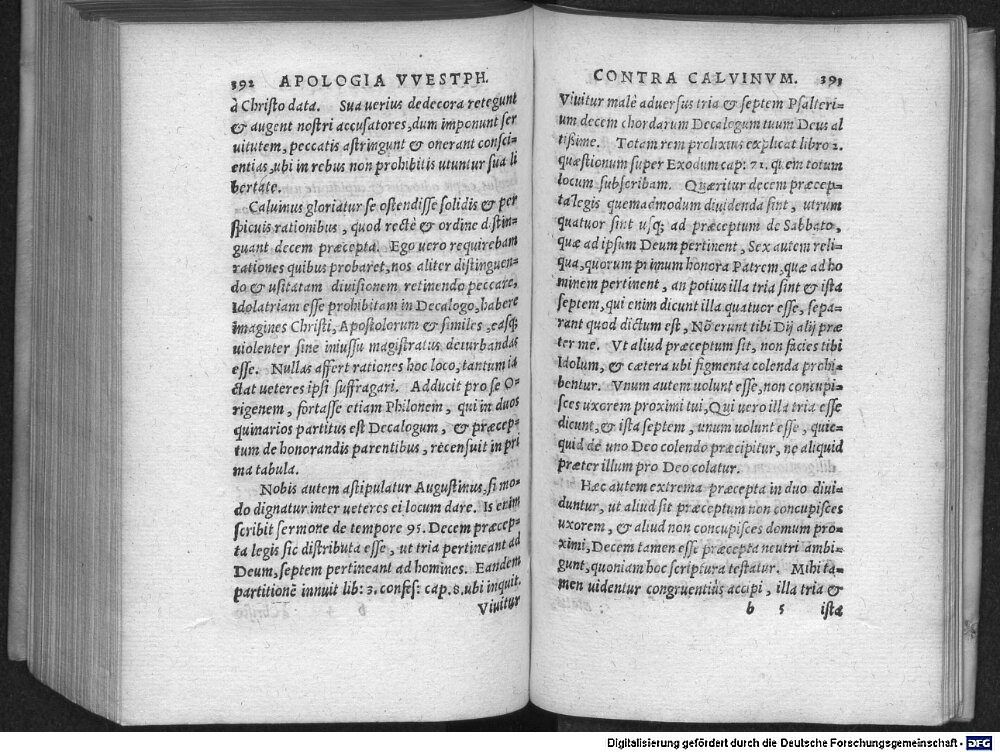 392 APOLOGIA VVESTPH.
à Christo data. Sua uerius dedecora retegunt
& augent nostri accusatores, dum imponunt ser
uitutem, peccatis astringunt & onerant consci=
entias, ubi in rebus non prohibitis utuntur sua li
bertate.
Caluinus gloriatur se ostendisse solidis & per
spicuis rationibus, quod rectè & ordine distin=
guant decem præcepta. Ego uero requirebam
rationes quibus probaret, nos aliter distinguen=
do & usitatam diuisionem retinendo peccare,
Idolatriam esse prohibitam in Decalogo, habere
imagines Christi, Apostolorum & similes, easq́;
uiolenter sine iniussu magistratus deturbandas
esse. Nullas affert rationes hoc loco, tantum ia
ctat ueteres ipsi suffragari. Adducit pro se O=
rigenem, fortasse etiam Philonem, qui in duos
quinarios partitus est Decalogum, & præcep=
tum de honorandis parentibus, recensuit in pri
ma tabula.
Nobis autem astipulatur Augustinus, si mo=
do dignatur inter ueteres ei locum dare. Is enim
scribit sermone de tempore 95. Decem præcep=
ta legis sic distributa esse, ut tria pertineant ad
Deum, septem pertineant ad homines. Eandem
partitionē innuit lib: 3. confes: cap. 8. ubi inquit.
Viuitur
CONTRA CALVINVM. 393
Viuitur malè aduersus tria & septem Psalteri=
um decem chordarum Decalogum tuum Deus al
tissime. Totam rem prolixius explicat libro 2.
quæstionum super Exodum cap: 71. quem totum
locum subscribam. Quæritur decem præcep=
ta legis quemadmodum diuidenda sint, utrum
quatuor sint usq; ad præceptum de Sabbato,
quæ ad ipsum Deum pertinent, Sex autem reli=
qua, quorum primum honora Patrem, quæ ad ho
minem pertinent, an potius illa tria sint & ista
septem, qui enim dicunt illa quatuor esse, sepa=
rant quod dictum est, Nō erunt tibi Dij alij præ
ter me. Vt aliud præceptum sit, non facies tibi
Idolum, & cætera ubi figmenta colenda prohi=
bentur. Vnum autem uolunt esse, non concupi=
sces uxorem proximi tui, Qui uero illa tria esse
dicunt, & ista septem, unum uolunt esse, quic=
quid de uno Deo colendo præcipitur, ne aliquid
præter illum pro Deo colatur.
Hæc autem extrema præcepta in duo diui=
duntur, ut aliud sit præceptum non concupisces
uxorem, & aliud non concupisces domum pro=
ximi, Decem tamen esse præcepta neutri ambi=
gunt, quoniam hoc scriptura testatur. Mihi ta=
men uidentur congruentiùs accipi, illa tria &
b 5 istæ
Digitalisierung gefördert durch die Deutsche Forschungsgemeinschaft - DFG